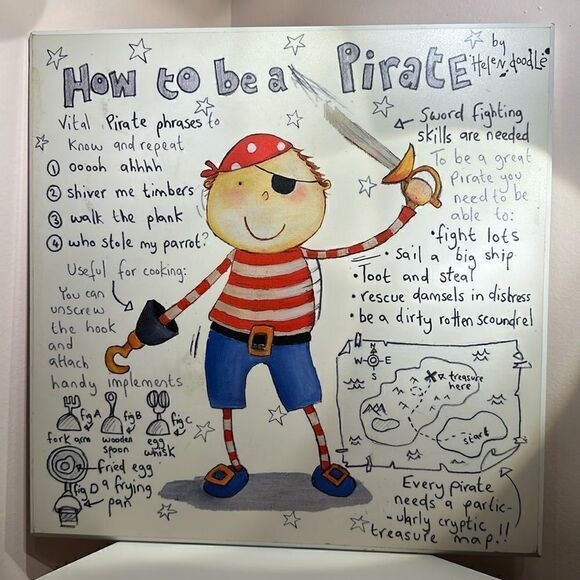 How to be a Pirate
by Helen doodle
Vital Pirate phrases to
Know and repeat
1 ooooh ahhhh
2 shiver me timbers
3 walk the plank
4 who stole my parrot?
Useful for cooking:
You can
unscrew
the hook
and
attach
handy implements
fig A
fork arm
fig B
wooden
spoon
fig C
egg
whisk
fried egg
fig D
a frying
pan
Sword fighting
skills are needed
To be a great
Pirate you
need to be
able to:
• fight lots
• Sail a big ship
• Toot and steal
• rescue damsels in distress
• be a dirty rotten scoundrel
N
W E
S
X treasure
here
start
Every pirate
needs a partic-
-ularly cryptic
treasure map!!